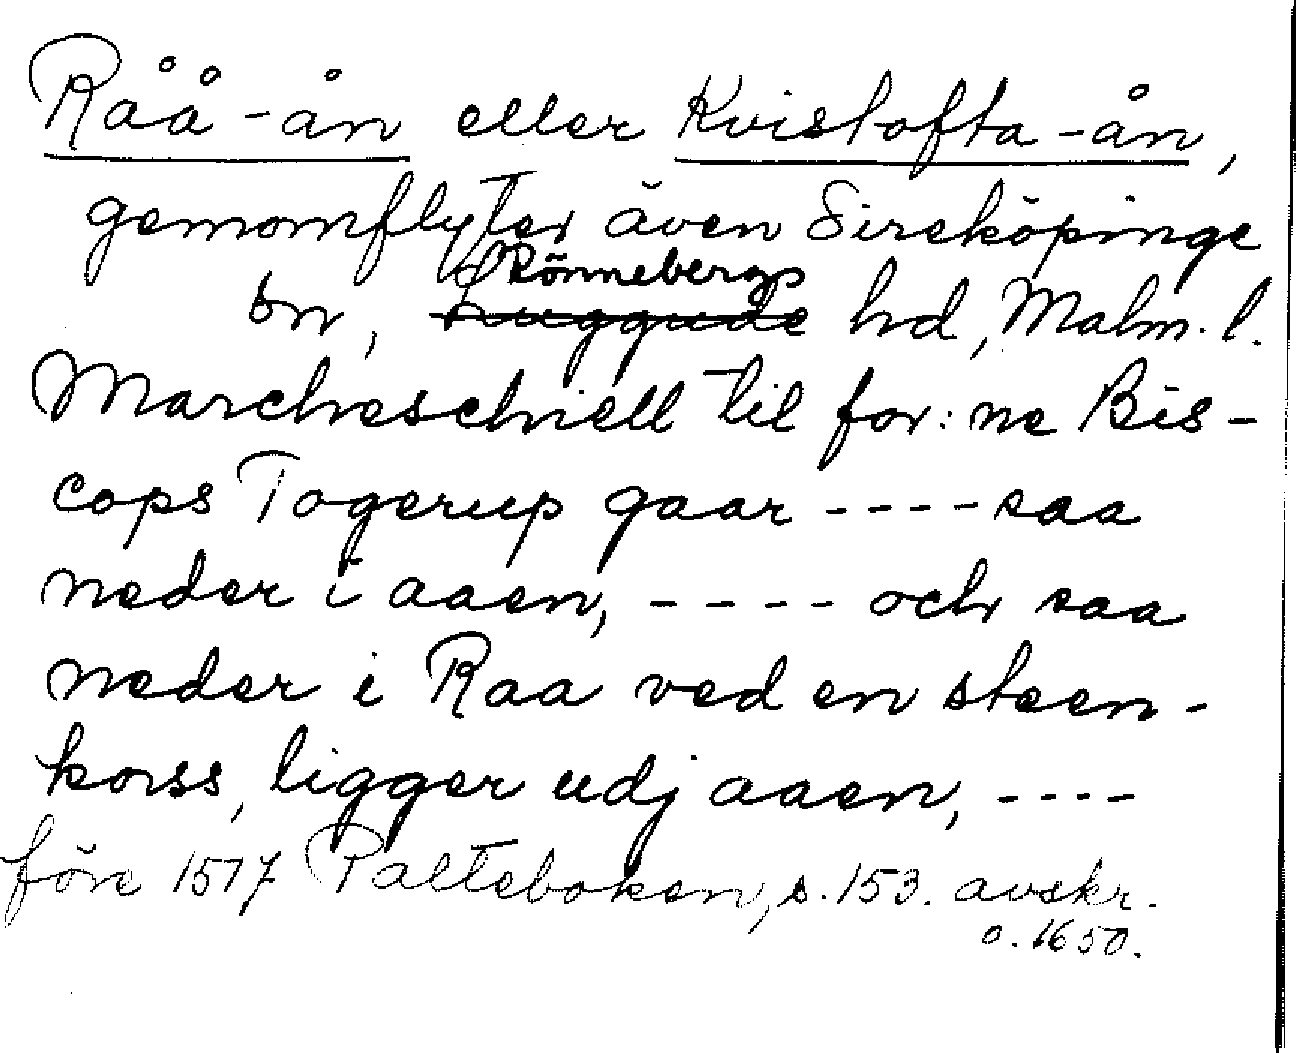 Råå-ån eller Kvistofta-ån,
genomflyter även Sireköpinge
Rönnebergs
sn, Luggude hd, Malm. l.
Marcheschiell til for: ne Bis-
cops Togerup gaar ---- saa
neder i aaen, ---- och saa
neder i Raa ved en steen-
korss, ligger udj aaen, ----
före 1517 Palteboken, s. 153. avskr.
o. 1650.